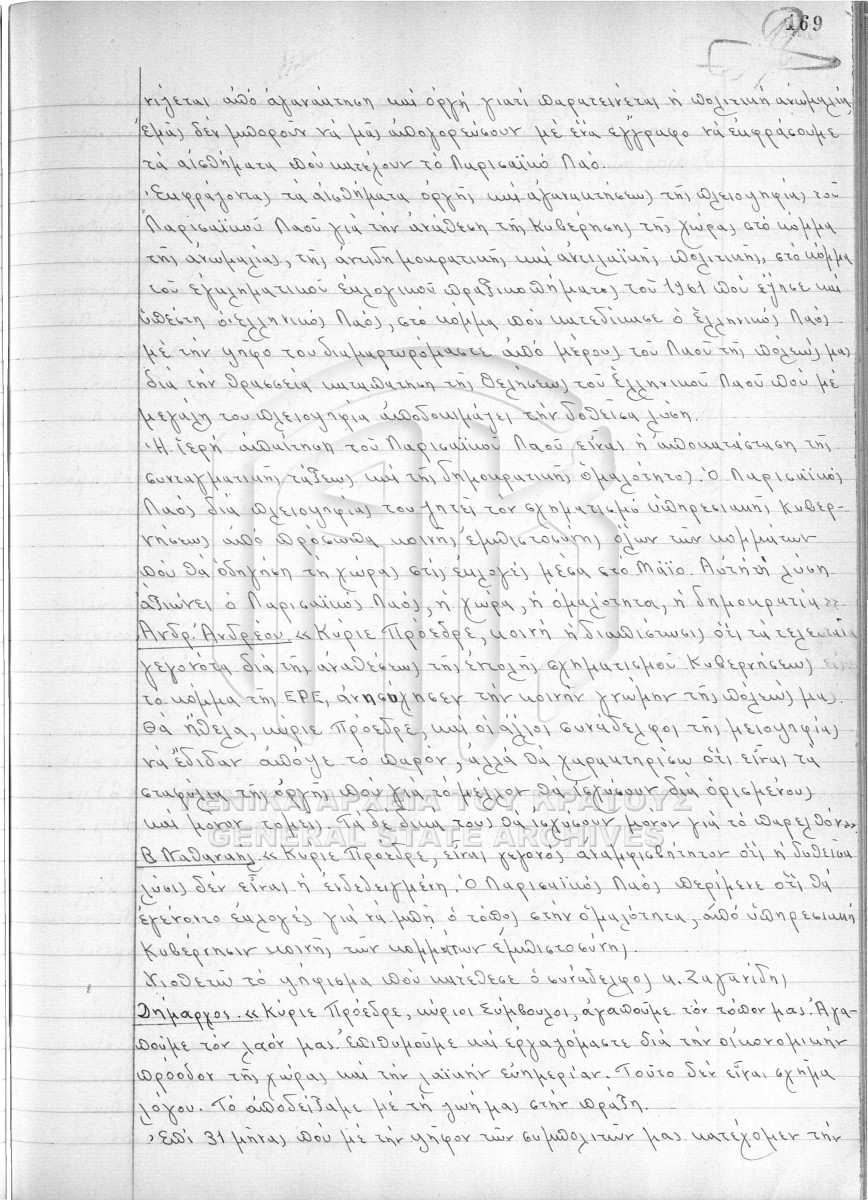 169
νίζεται ἀπό ἀγανάκτηση καί ὀργή γιατί παρατείνεται ἡ πολιτική ἀνωμαλία
Ἐμᾶς δέν μποροῦν νά μᾶς ἀπαγορεύσουν μέ ἕνα ἔγγραφο νά ἐκφράσουμε
τά αἰσθήματα πού κατέχουν τό Λαρισαϊκό Λαό.
Ἐκφράζοντας τά αἰσθήματα ὀργῆς καί ἀγανακτήσεως τῆς πλειοψηφίας τοῦ
Λαρισαϊκοῦ Λαοῦ γιά τήν ἀνάθεση τῆς Κυβέρνησης τῆς χώρας στό κόμμα
τῆς ἀνωμαλίας, τῆς ἀντιδημοκρατικῆς καί ἀντιλαϊκῆς πολιτικῆς, στό κόμμα
τοῦ ἐγκληματικοῦ ἐκλογικοῦ πραξικοπήματος τοῦ 1961 πού ἔζησε καί
ὑπέστη ὁ Ἑλληνικός Λαός, στό κόμμα πού κατεδίκασε ὁ Ἑλληνικός Λαός
μέ τήν ψῆφο του διαμαρτυρόμαστε ἀπό μέρους τοῦ Λαοῦ τῆς πόλεώς μας
διά τήν θρασσεία καταπάτηση τῆς θελήσεως τοῦ Ἑλληνικοῦ Λαοῦ πού μέ
μεγάλη του πλειοψηφία ἀποδοκιμάζει τήν δοθεῖσα λύση.
Ἡ ἱερή ἀπαίτηση τοῦ Λαρισαϊκοῦ Λαοῦ εἶναι ἡ ἀποκατάσταση τῆς
συνταγματικῆς τάξεως καί τῆς δημοκρατικῆς ὁμαλότητος. Ὁ Λαρισαϊκός
Λαός διά πλειοψηφίας του ζητεῖ τόν σχηματισμό ὑπηρεσιακῆς Κυβερ-
νήσεως ἀπό πρόσωπα κοινῆς ἐμπιστοσύνης ὅλων τῶν κομμάτων
πού θά ὁδηγήση τή χώρας στίς ἐκλογές μέσα στό Μάϊο. Αὐτή τή λύση
ἀξιώνει ὁ Λαρισαϊκός Λαός, ἡ χώρα, ἡ ὁμαλότητα, ἡ δημοκρατία»
Ἀνδρ. Ἀνδρέου. «Κύριε Πρόεδρε, κοινή ἡ διαπίστωσις ὅτι τά τελευταῖα
γεγονότα διά τῆς ἀναθέσεως τῆς ἐντολῆς σχηματισμοῦ Κυβερνήσεως εἰς
τό κόμμα τῆς ΕΡΕ, ἀνησύχησεν τήν κοινήν γνώμην τῆς πόλεώς μας.
Θά ἤθελα, κύριε Πρόεδρε, καί οἱ ἄλλοι συνάδελφοι τῆς μειοψηφίας
νά ἔδιδαν ἀπόψε τό παρόν, ἀλλά θά χαρακτηρίσω ὅτι εἶναι τά
σταφύλια τῆς ὀργῆς πού γιά τό μέλλον θά ἰσχύσουν διά ὁρισμένους
καί μόνον τομεῖς. Τά δέ δικά τους θά ἰσχύσουν μόνον γιά τό παρελθόν»
ΓΕΝΙΚΑ ΑΡΧΕΙΑ ΤΟΥ ΚΡΑΤΟΥΣ
GENERAL STATE ARCHIVES
«Κύριε Πρόεδρε, εἶναι γεγονός ἀναμφισβήτητον ὅτι ἡ δοθεῖσα
λύσις δέν εἶναι ἡ ἐνδεδειγμένη. Ὁ Λαρισαϊκός Λαός περίμενε ὅτι θά
ἐγένοντο ἐκλογές γιά νά μπῆ ὁ τόπος στήν ὁμαλότητα, ἀπό ὑπηρεσιακή
Κυβέρνησιν κοινῆς τῶν κομμάτων ἐμπιστοσύνης.
Υἱοθετῶ τό ψήφισμα πού κατέθεσε ὁ συνάδελφος κ. Ζαγανίδης
Δήμαρχος. «Κύριε Πρόεδρε, κύριοι Σύμβουλοι, ἀγαποῦμε τόν τόπον μας. Ἀγα-
ποῦμε τόν λαόν μας. Ἐπιθυμοῦμε καί ἐργαζόμαστε διά τήν οἰκονομικήν
πρόοδον τῆς χώρας καί τήν λαϊκήν εὐημερίαν. Τοῦτο δέν εἶναι σχῆμα
λόγου. Τό ἀποδείξαμε μέ τή ζωή μας στήν πράξη.
Ἐπί 31 μῆνας πού μέ τήν ψῆφον τῶν συμπολιτῶν μας κατέχομεν τήν